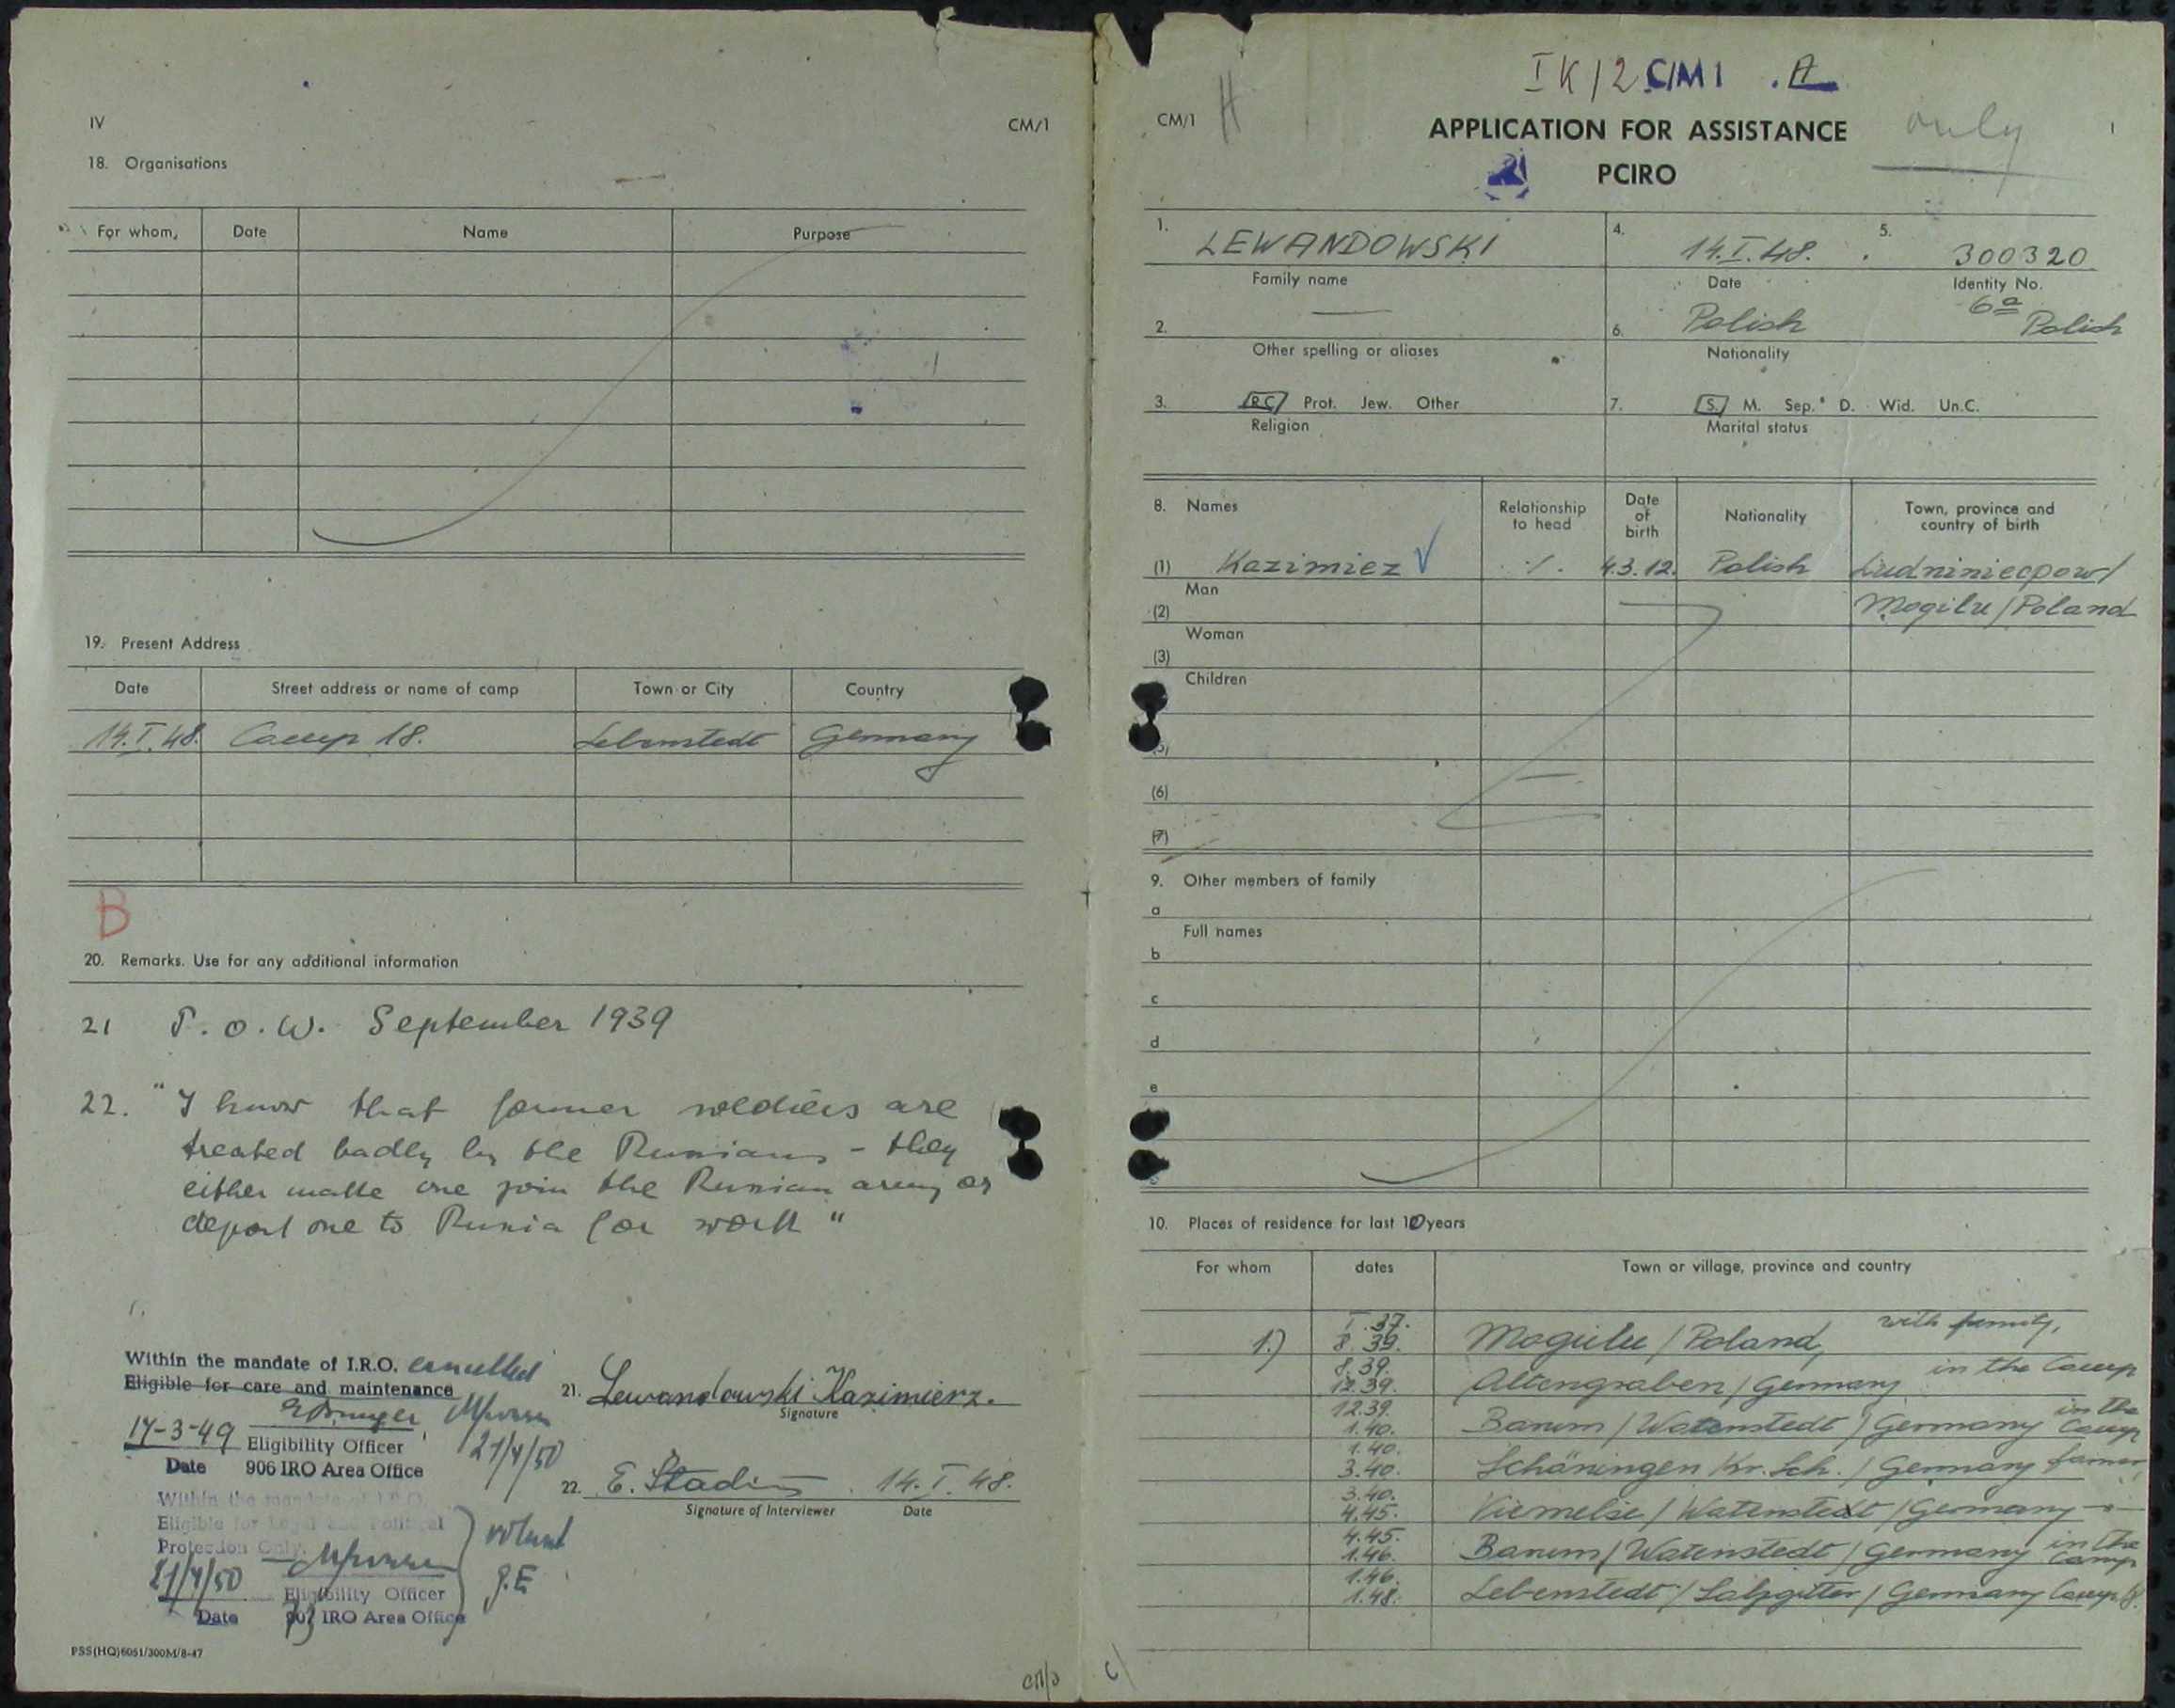 IV
CM/1
18. Organisations
For whom, Date Name Purpose
19. Present Address
Date Street address or name of camp Town or City Country
14.I.48. Camp 18. Lebenstedt Germany
B
20. Remarks. Use for any additional information
21 P.o.W. September 1939
22. "I know that former soldiers are
treated badly by the Russians - they
either make one join the Russian army or
deport one to Russia for work"
Within the mandate of I.R.O. cancelled
Eligible for care and maintenance
17-3-49 Eligibility Officer 21/4/50
Date 906 IRO Area Office
Within the mandate of I.R.O.
Eligible for Legal and Political
Protection Only.
21/4/50 Eligibility Officer
Date IRO Area Office
J.E
21. Lewandowski Kazimierz.
Signature
22. E. 14.I.48.
Signature of Interviewer Date
PSS(HQ)6051/300M/8-47
IK/2 C/M1 . A
CM/1 H
APPLICATION FOR ASSISTANCE only
PCIRO
1. LEWANDOWSKI
Family name
4. 14.I.48.
Date
5. 300320
Identity No.
2. —
Other spelling or aliases
6. Polish
Nationality
6a Polish
3. R.C. Prot. Jew. Other
Religion
7. S. M. Sep. D. Wid. Un.C.
Marital status
8. Names Relationship to head Date of birth Nationality Town, province and country of birth
(1) Kazimiez ·/. 4.3.12. Polish
Man
Mogilu/Poland
(2)
Woman
(3)
Children
(5)
(6)
(7)
9. Other members of family
a
Full names
b
c
d
e
10. Places of residence for last 10 years
For whom dates Town or village, province and country
1.) I.37. 8.39. Mogilu/Poland, with family,
8.39. 12.39. Altengraben/Germany in the Camp
12.39. 1.40. Barum/Watenstedt/Germany in the Camp
1.40. 3.40. Schöningen Kr. Sch./Germany farmer
3.40. 4.45. /Watenstedt/Germany -"-
4.45. 1.46. Barum/Watenstedt/Germany in the Camp
1.46. 1.48. Lebenstedt/Salzgitter/Germany Camp 18.